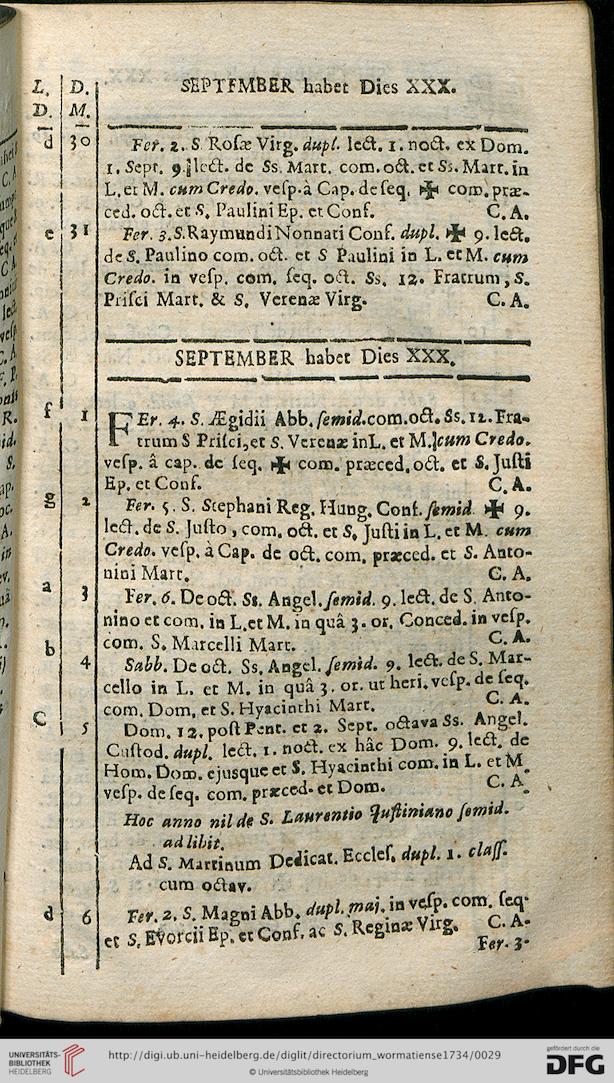 L. D. SEPTEMBER habet Dies XXX.
D. M.
d 30 Fer. 2. S. Rosæ Virg. dupl. lect. 1. noct. ex Dom.
1. Sept. 9. lect. de Ss. Mart. com. oct. et Ss. Mart. in
L. et M. cum Credo. vesp. à Cap. de seq. ✠ com. præ-
ced. oct. et S. Paulini Ep. et Conf. C. A.
e 31 Fer. 3. S. Raymundi Nonnati Conf. dupl. ✠ 9. lect.
de S. Paulino com. oct. et S Paulini in L. et M. cum
Credo. in vesp. com. seq. oct. Ss. 12. Fratrum, S.
Prisci Mart. & S. Verenæ Virg. C. A.
SEPTEMBER habet Dies XXX.
f 1 FEr. 4. S. Ægidii Abb. semid. com. oct. Ss. 12. Fra-
trum S Prisci, et S. Verenæ in L. et M. cum Credo.
vesp. â cap. de seq. ✠ com. præced. oct. et S. Justi
Ep. et Conf. C. A.
g 2 Fer. 5. S. Stephani Reg. Hung. Conf. semid ✠ 9.
lect. de S. Justo, com. oct. et S. Justi in L. et M. cum
Credo. vesp. à Cap. de oct. com. præced. et S. Anto-
nini Mart. C. A.
a 3 Fer. 6. De oct. Ss. Angel. semid. 9. lect. de S. Anto-
nino et com. in L. et M. in quâ 3. or. Conced. in vesp.
com. S. Marcelli Mart. C. A.
b 4 Sabb. De oct. Ss. Angel. semid. 9. lect. de S. Mar-
cello in L. et M. in quâ 3. or. ut heri. vesp. de seq.
com. Dom. et S. Hyacinthi Mart. C. A.
C 5 Dom. 12. post Pent. et 2. Sept. octava Ss. Angel.
Custod. dupl. lect. 1. noct. ex hâc Dom. 9. lect. de
Hom. Dom. ejusque et S. Hyacinthi com. in L. et M
vesp. de seq. com. præced. et Dom. C. A.
Hoc anno nil de S. Laurentio Justiniano semid.
ad libit.
Ad S. Martinum Dedicat. Eccles. dupl. 1. class.
cum octav.
d 6 Fer. 2. S. Magni Abb. dupl. maj. in vesp. com. seq.
et S. Evorcii Ep. et Conf. ac S. Reginæ Virg. C. A.
Fer. 3.
UNIVERSITÄTS-
BIBLIOTHEK
HEIDELBERG
http://digi.ub.uni-heidelberg.de/diglit/directorium_wormatiense1734/0029
© Universitätsbibliothek Heidelberg
gefördert durch die
DFG